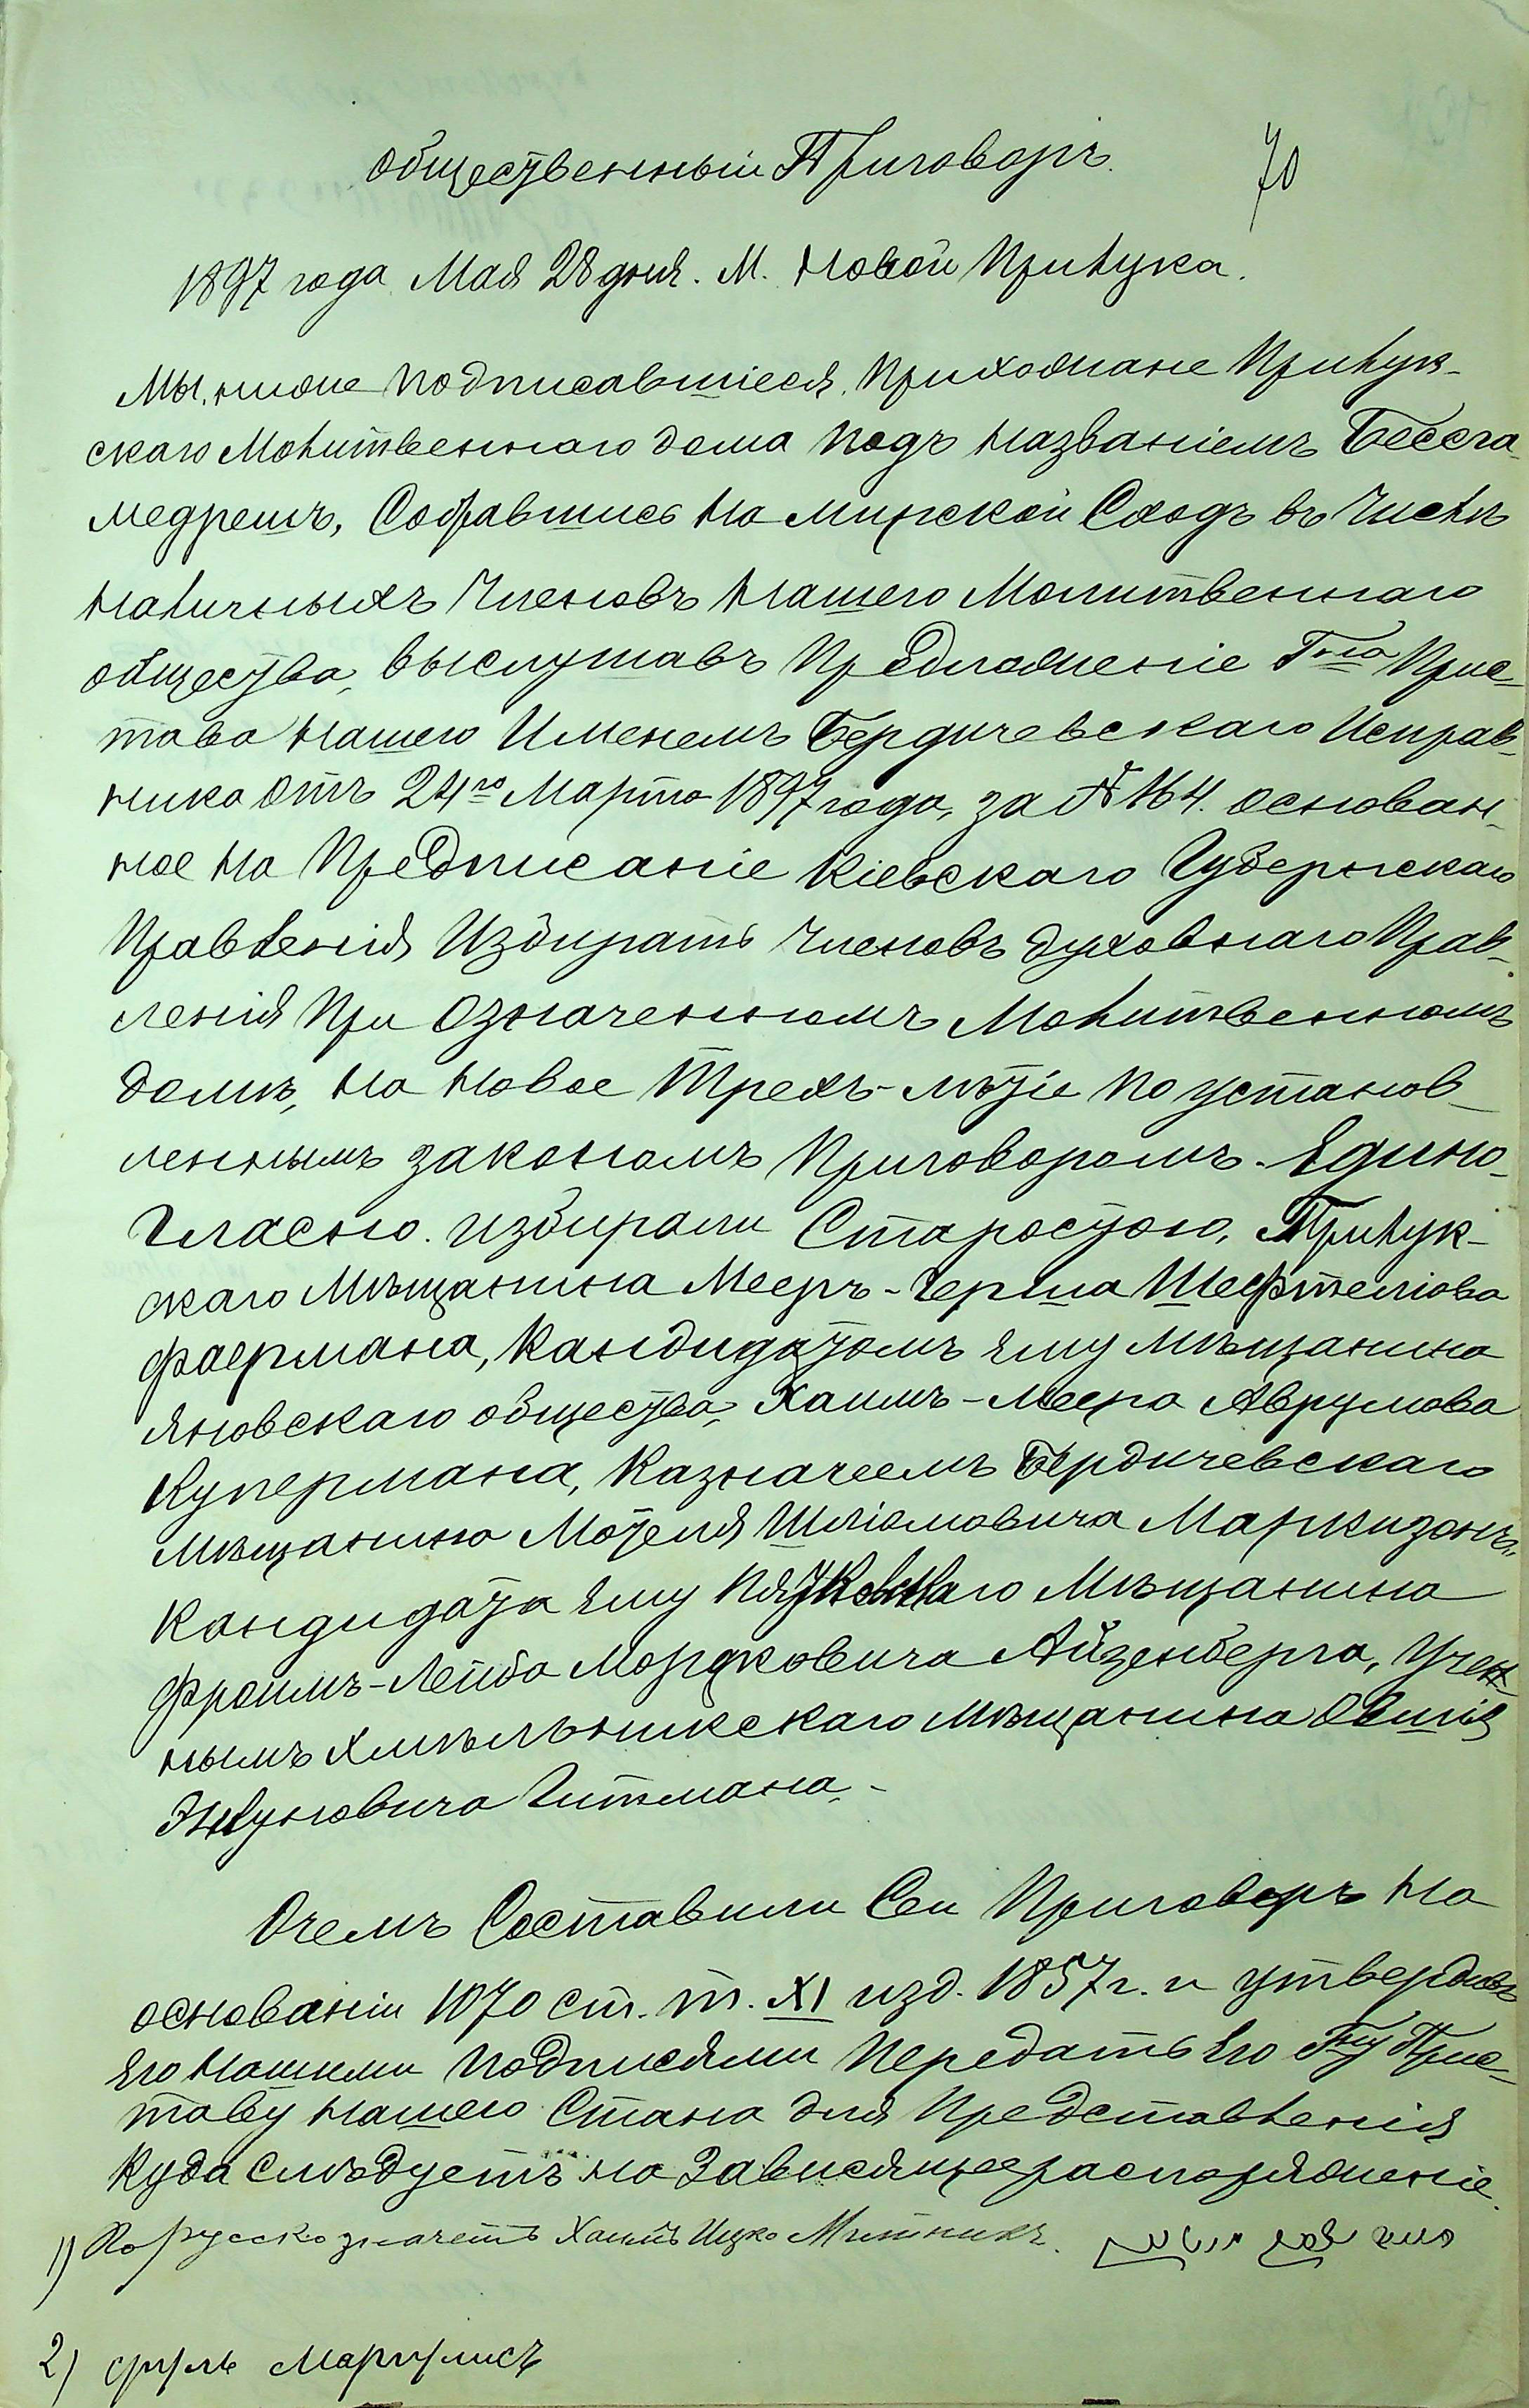 Общественный Приговоръ.
70
1897 года Мая 28 дня. М. Новой Прилука.
Мы, ниже подписавшіеся, прихожане Прилук-
скаго Молитвеннаго дома подъ названіемъ Бесега
медрешъ, Собравшись на мирской Сходъ въ числѣ
наличныхъ членовъ нашего Молитвеннаго
общества, выслушавъ предложеніе Гна Прис-
тава нашего Именемъ Бердичевскаго Исправ-
ника отъ 24го Марта 1897 года, за № 164. основан-
ное на предписаніе Кіевскаго Губернскаго
Правленія Избирать членовъ духовнаго Прав-
ленія при означенномъ Молитвенномъ
домѣ, на новое Трехъ-лѣтіе по установ-
леннымъ закономъ Приговоромъ. Едино-
гласно. избирали Старостою, Прилук-
скаго Мѣщанина Мееръ-Герша Шефтеліова
Фаермана, Кандидатомъ ему мѣщанина
Яновскаго общества, Хаимъ-Меера Аврумова
Купермана, Казначеемъ Бердичевскаго
мѣщанина Мотеля Шліомовича Маркизонъ,
Кандидата ему мѣщанина
Фроимъ-Лейба Мордковича Айзенберга, Учен-
нымъ Хмѣльникскаго мѣщанина Овшія
Гитмана.-
О чемъ Составили Сей Приговоръ на
основаніи 1070 ст. т. XI изд. 1857 г. и утвердивъ
его нашими подписями передать его Гну Прис-
таву нашего Стана для представленія
куда слѣдуетъ на зависящее распоряженіе.
1) По русско значетъ Хаимъ Ицко Митникъ.
2) Сруль Маргулисъ